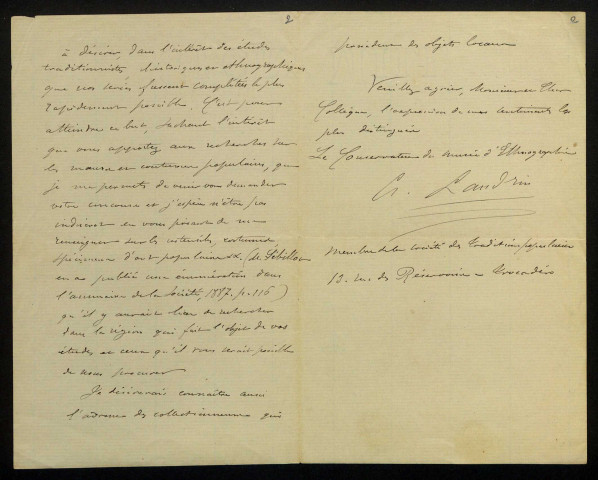 2
à désirer, dans l'intérêt des études
traditionnistes, historiques et ethnographiques
que nos séries fussent complétées le plus
rapidement possible. C'est pour
atteindre ce but, sachant l'intérêt
que vous apportez aux recherches sur
les mœurs et coutumes populaires, que
je me permets de venir vous demander
votre concours et j'espère n'être pas
indiscret en vous priant de me
renseigner sur les ustensiles, costumes,
spécimens d'art populaire etc. (M. Sébillot
en a publié une énumération dans
l'annuaire de la Société, 1887. p. 116)
qu'il y aurait lieu de rechercher
dans la région qui fait l'objet de vos
études et ceux qu'il vous serait possible
de nous procurer
Je désirerais connaître aussi
l'adresse des collectionneurs qui
2
possèdent des objets locaux
Veuillez agréer, Monsieur et cher
Collègue, l'expression de mes sentiments les
plus distingués
Le Conservateur du musée d'Ethnographie
A. Landrin
membre de la Société des Traditions populaires
12. rue des Réservoirs - Trocadéro